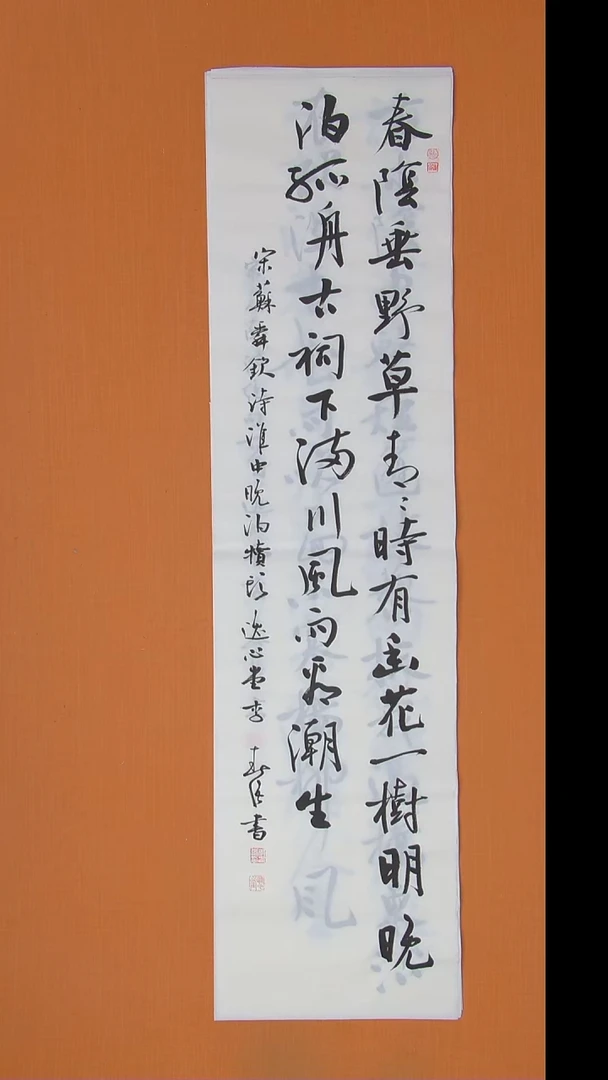 春陰垂野草青〻時有幽花一樹明晚
泊孤舟古祠下滿川風雨看潮生
宋蘇舜欽詩淮中晚泊犢頭 逸心堂李 書